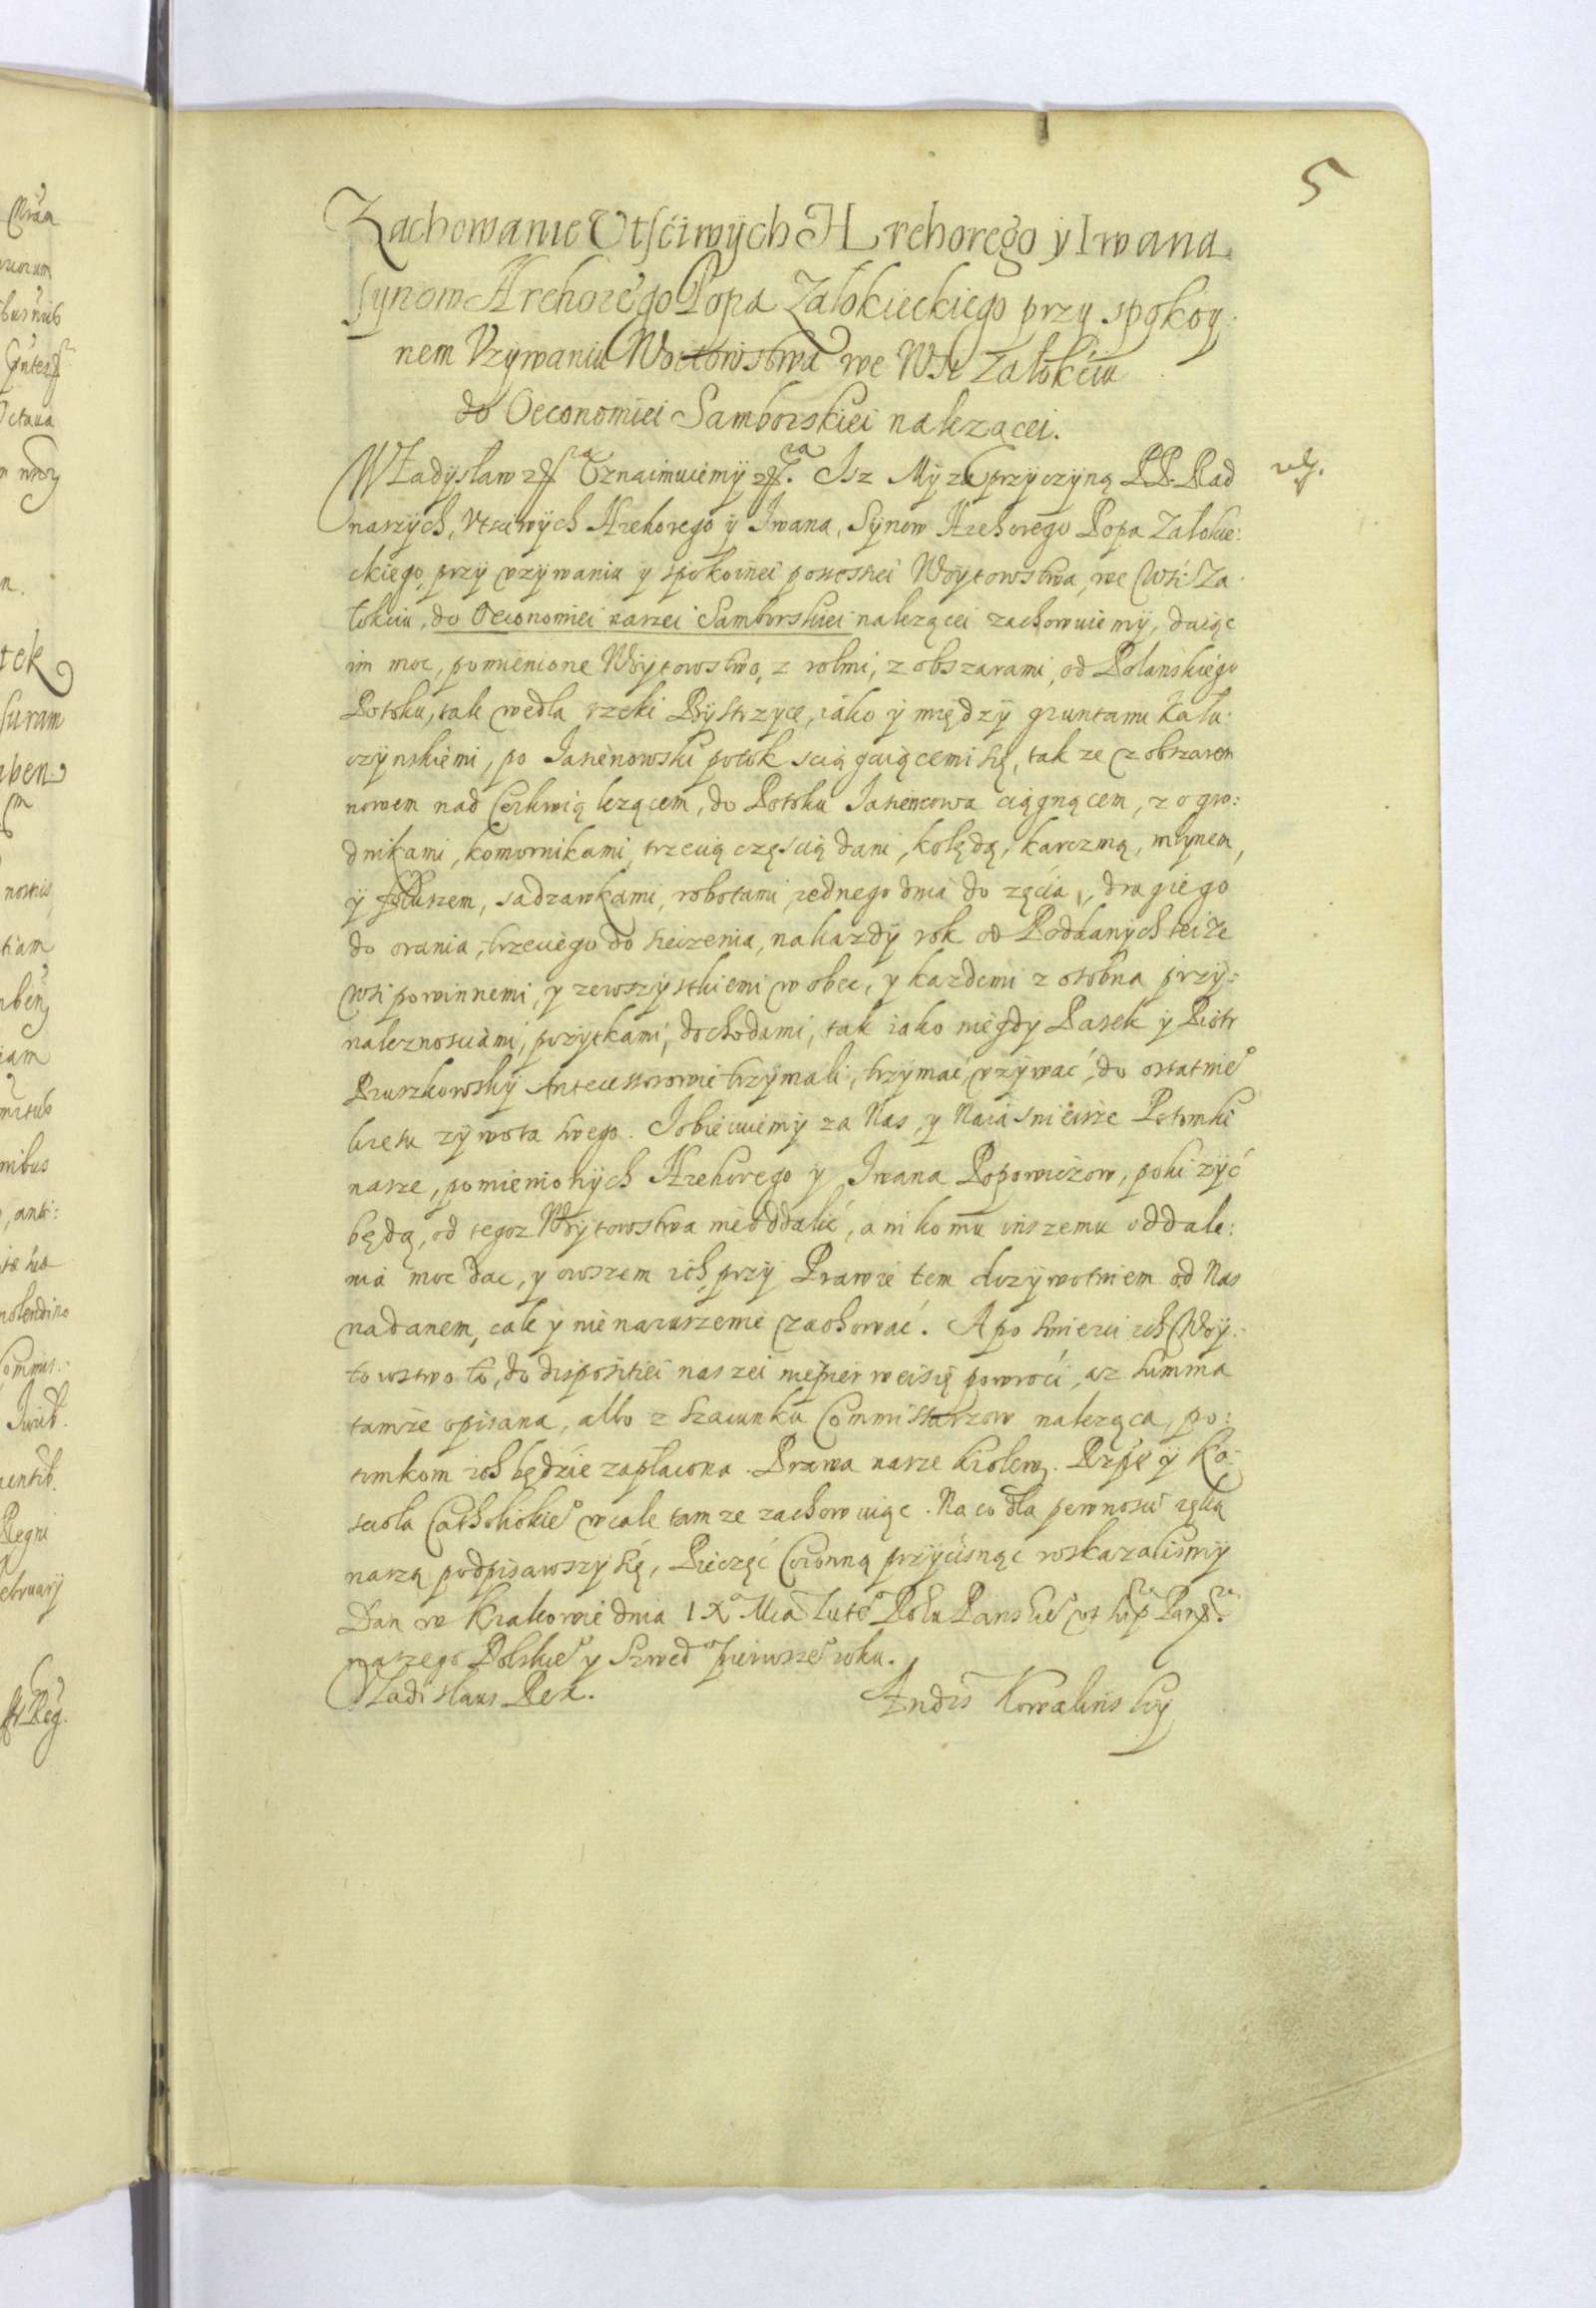 5
Zachowanie Utſciwÿch Hrehorego ÿ Iwana
synow Hrehorego Popa Załokieckiego przy spokoy:
nem Vzywaniu Woitowstwa we Wsi Załokciu
do Oeconomiei Samborskiei nalezącei.
Władysław Oznaimuiemÿ Isz Mÿ za przyczyną PP. Rad
naszÿch, Vtsciwÿch Hrehorego ÿ Iwana, Sÿnow Hrehorego Popa Załokie:
ckiego, przÿ vzÿwaniu ÿ spokoinei possessiei Woÿtowstwa, we Wsi Za:
łokciu, do Oeconomiei naszei Samborskiei nalezącei zachowuiemÿ, daiąc
im moc, pomienione Woÿtowstwo, z rolmi, z obszarami, od Polanskiego
Potoku, tak wedla rzeki Bÿstrzyce, iako ÿ międzÿ gruntami Kału:
szynskiemi, po Jasienowski potok sciągaiącemi się, tak ze z obszarem
nowem nad Cerkwią lezącem, do Potoku Jasienowa ciągnącem, z ogro:
dnikami, komornikami, trzecią częscią dani, kolędą, karczmą, młÿnem,
ÿ foluszem, sadzawkami, robotami, iednego dnia do zęcia, drugiego
do orania, trzeciego do sieczenia, na kazdÿ rok od Poddanÿch teÿze
wsi powinnemi, y zewszÿstkiemi w obec, y kazdemi z osobna przÿ:
naleznosciami, pozÿtkami, dochodami, tak iako niegdÿ Pasek ÿ Piotr
Pruszkowskÿ Antecessorowie trzÿmali, trzÿmać, vzÿwać, do ostatnie°
kresu zÿwota swego. Jobiecuiemÿ za Nas, y Naiasnieisze Potomki
nasze, pomienionÿch Hrehorego y Iwana Popowiczow, poki zÿć
będą, od tegoz Woÿtowstwa nieoddalić, a nikomu inszemu oddale:
nia moc dac, y owszem ich, przÿ Prawie tem dozÿwotniem od Nas
nadanem, cale ÿ nie naruszenie zachować. A po smierci ich Woÿ:
towstwo to, do dispositiei naszei niepierwei się powroci, az summa
tamze opisana, albo z szacunku Commissarzow nalezącą, po:
tomkom ich będzie zapłacona. Prawa nasze Krolew. Rzpte ÿ Ko:
scioła Catholickie° wcale tam ze zachowuiąc. Na co dla pewnosci ręką
naszą podpisawszÿ się, Pieczęć Coronną przÿcisnąć roskazalismÿ
Dan w Krakowie dnia IX° Mca Lute° Roku Panskie° vt sup. Pan.
naszego Polskie° y Szwed° pierwsze° roku.
Vladislaus Rex. Andrs Kowalinskÿ